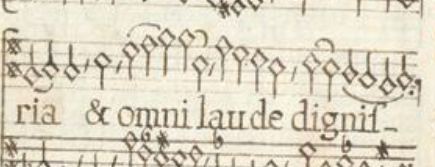 ria & omni laude digniſ-